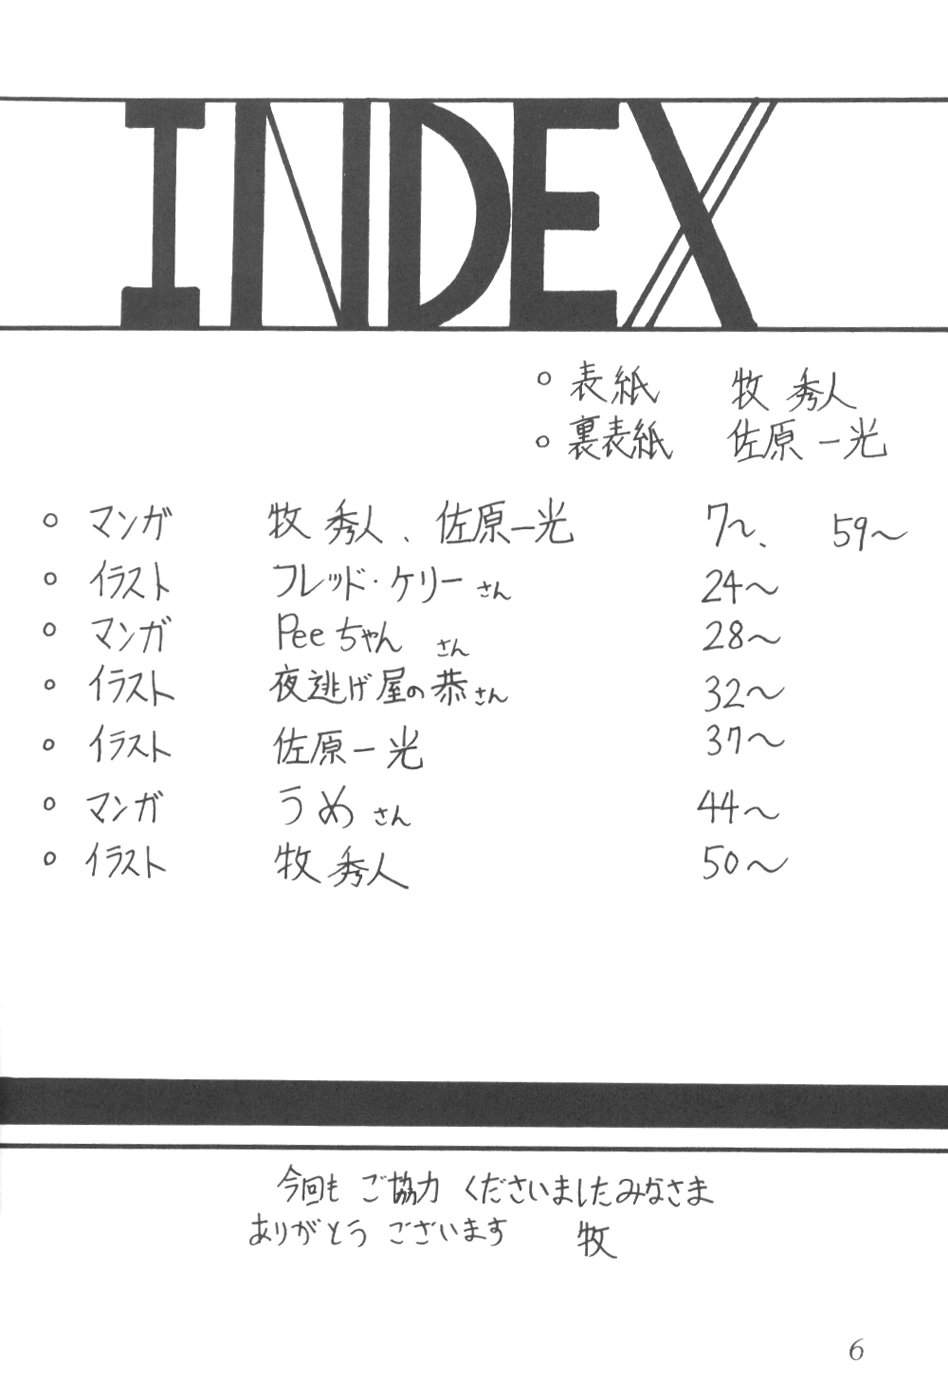 INDEX
○ 表紙 牧 秀人
○ 裏表紙 佐原 一光
○ マンガ 牧 秀人、佐原一光 7〜、 59〜
○ イラスト フレッド・ケリーさん 24〜
○ マンガ Peeちゃん さん 28〜
○ イラスト 夜逃げ屋の恭さん 32〜
○ イラスト 佐原一光 37〜
○ マンガ うめさん 44〜
○ イラスト 牧 秀人 50〜
今回も ご協力 くださいましたみなさま
ありがとう ございます 牧
6